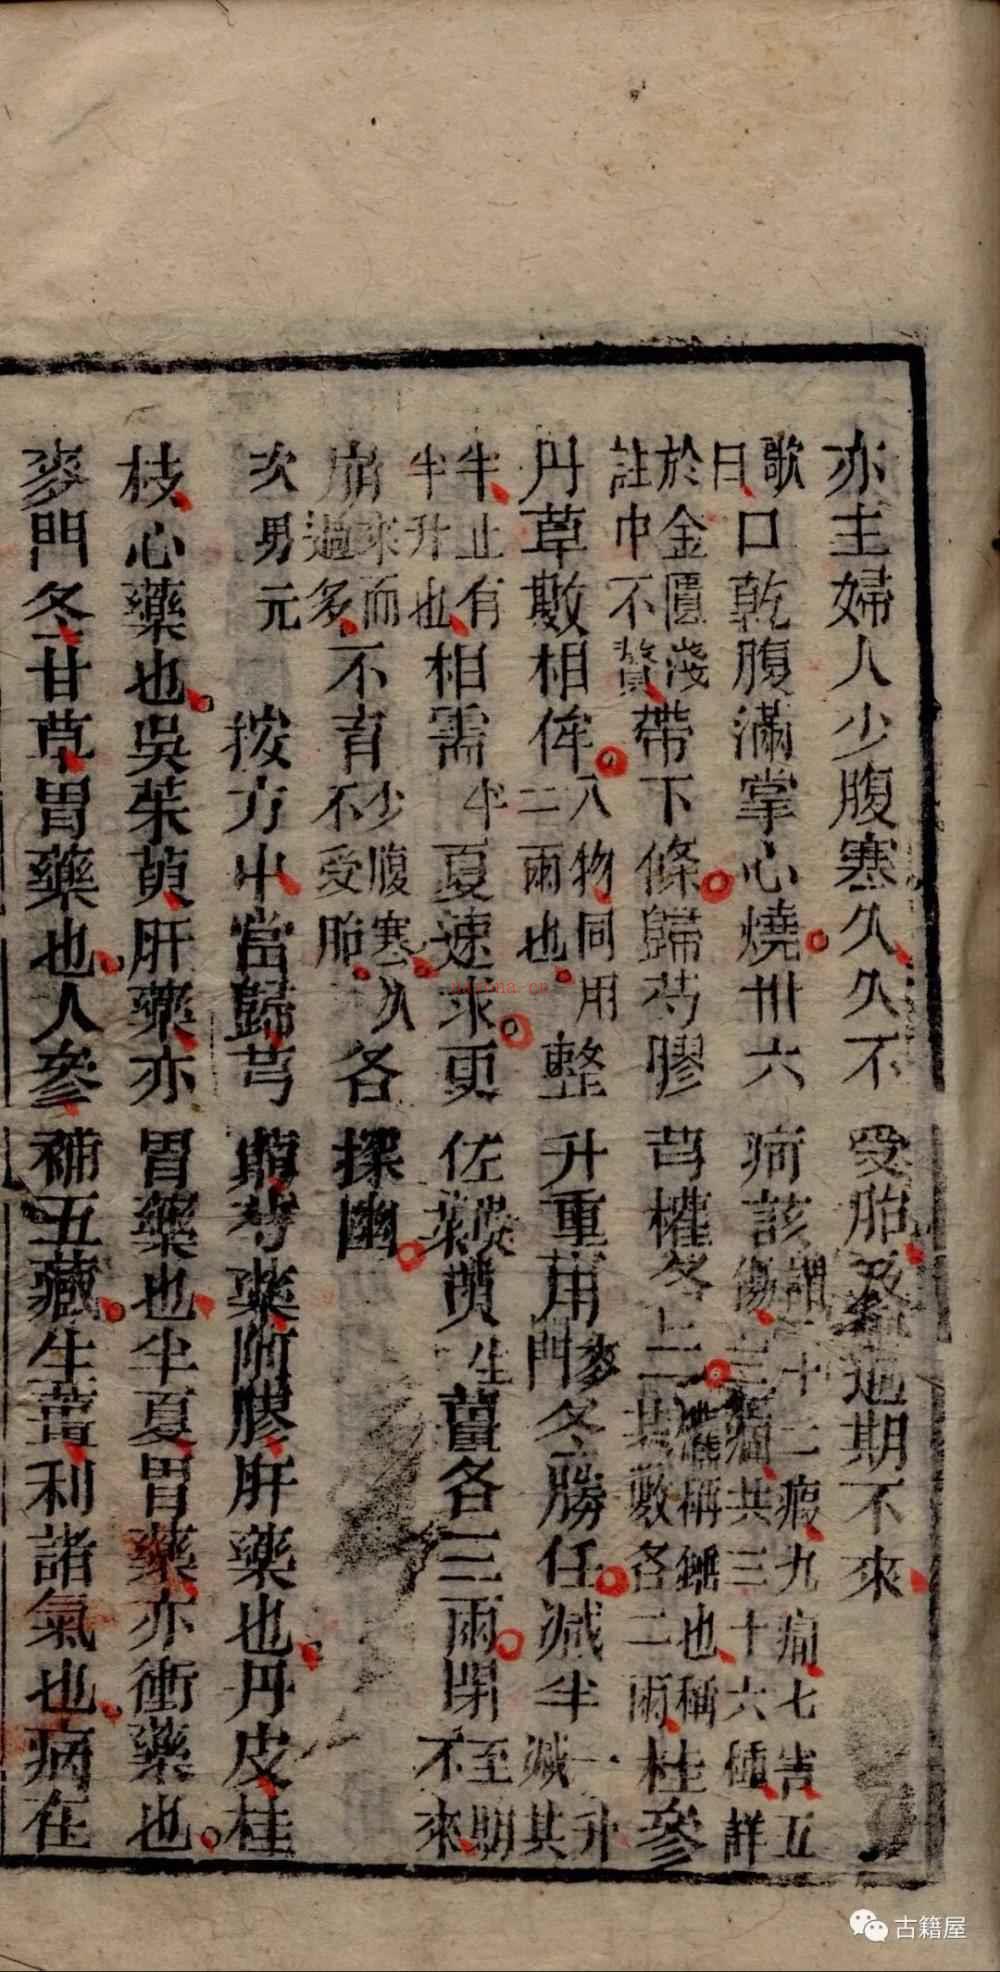 亦主婦人少腹寒久久不受胎過期不來
歌曰口乾腹滿掌心燒卅六病該謂十二瘕九痛七害五傷三痼共三十六種詳
於金匱淺註中不贅帶下條歸芍膠芎權各上二權稱錘也稱其數各二兩桂參
丹草數相侔八物同用二兩也整升重用麥門冬勝任減半一升減其
半止有半升也相需半夏速求更佐吳萸生薑各三兩閉至期不來
崩來而過多不育少腹寒久不受胎各探幽
次男元 按方中當歸芎藭芍藥阿膠肝藥也丹皮桂
枝心藥也吳茱萸肝藥亦胃藥也半夏胃藥亦衝藥也
麥門冬甘草胃藥也人參補五藏生薑利諸氣也病在
古籍屋